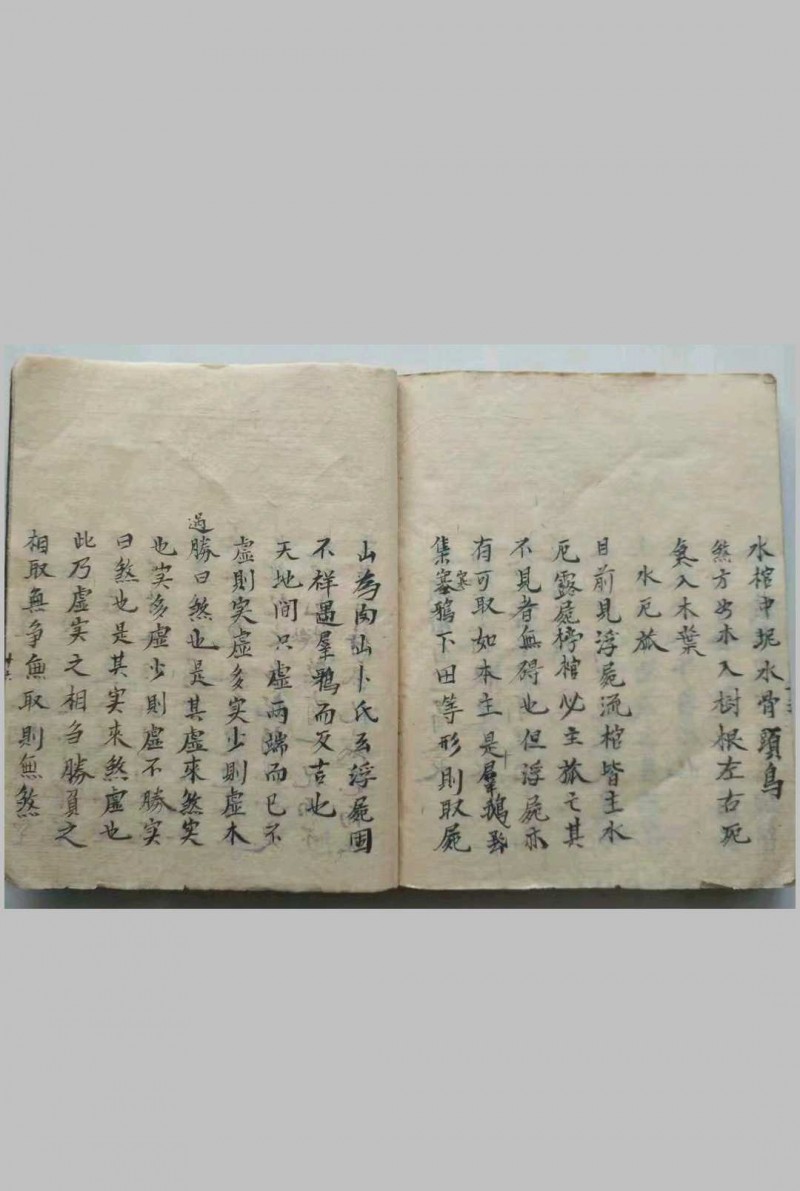 水棺中坭水骨頭烏
煞方出木入樹根左右死
氣入木葉
水厄孤
目前見浮屍流棺皆主水
厄露屍停棺必主孤亡其
不見者無碍也但浮屍亦
有可取如本主是羣鴉
集寒鴉下田等形則取屍
山為肉山卜氏云浮屍固
不祥遇羣鴉而反吉也
天地間只虛兩端而已不
虛則实虛多实少則虛木
過勝曰煞也是其虛來煞实
也实多虛少則虛不勝实
曰煞也是其实來煞虛也
此乃虛实之相為勝負之
相取無爭無取則無煞